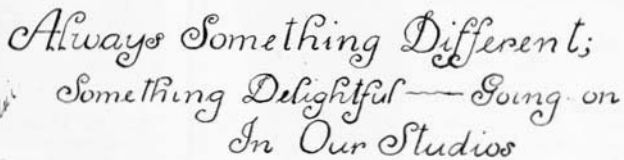 Always Something Different;
Something Delightful — Going on
In Our Studios